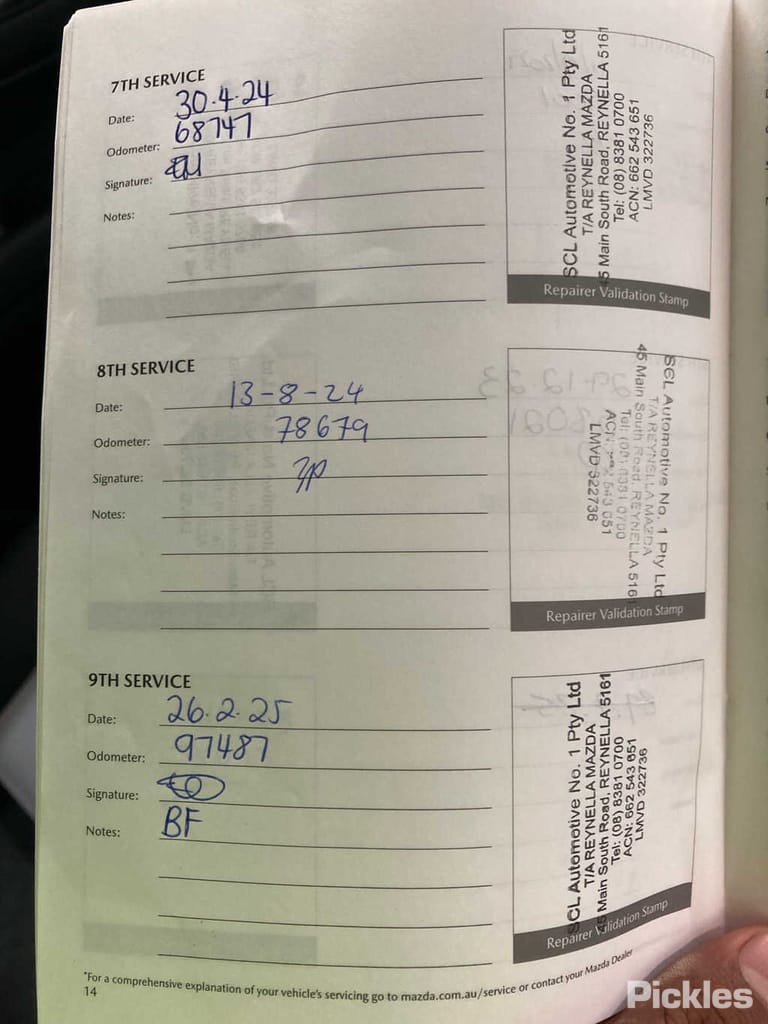 7TH SERVICE
Date: 30.4.24
Odometer: 68747
Signature:
Notes:
SCL Automotive No. 1 Pty Ltd
T/A REYNELLA MAZDA
45 Main South Road, REYNELLA 5161
Tel: (08) 8381 0700
ACN: 662 543 651
LMVD 322736
Repairer Validation Stamp
8TH SERVICE
Date: 13-8-24
Odometer: 78679
Signature:
Notes:
SCL Automotive No. 1 Pty Ltd
T/A REYNELLA MAZDA
45 Main South Road, REYNELLA 5161
Tel: (08) 8381 0700
ACN: 543 651
LMVD 322736
Repairer Validation Stamp
9TH SERVICE
Date: 26.2.25
Odometer: 97487
Signature:
Notes: BF
SCL Automotive No. 1 Pty Ltd
T/A REYNELLA MAZDA
45 Main South Road, REYNELLA 5161
Tel: (08) 8381 0700
ACN: 662 543 651
LMVD 322736
Repairer Validation Stamp
*For a comprehensive explanation of your vehicle's servicing go to mazda.com.au/service or contact your Mazda Dealer
14
Pickles